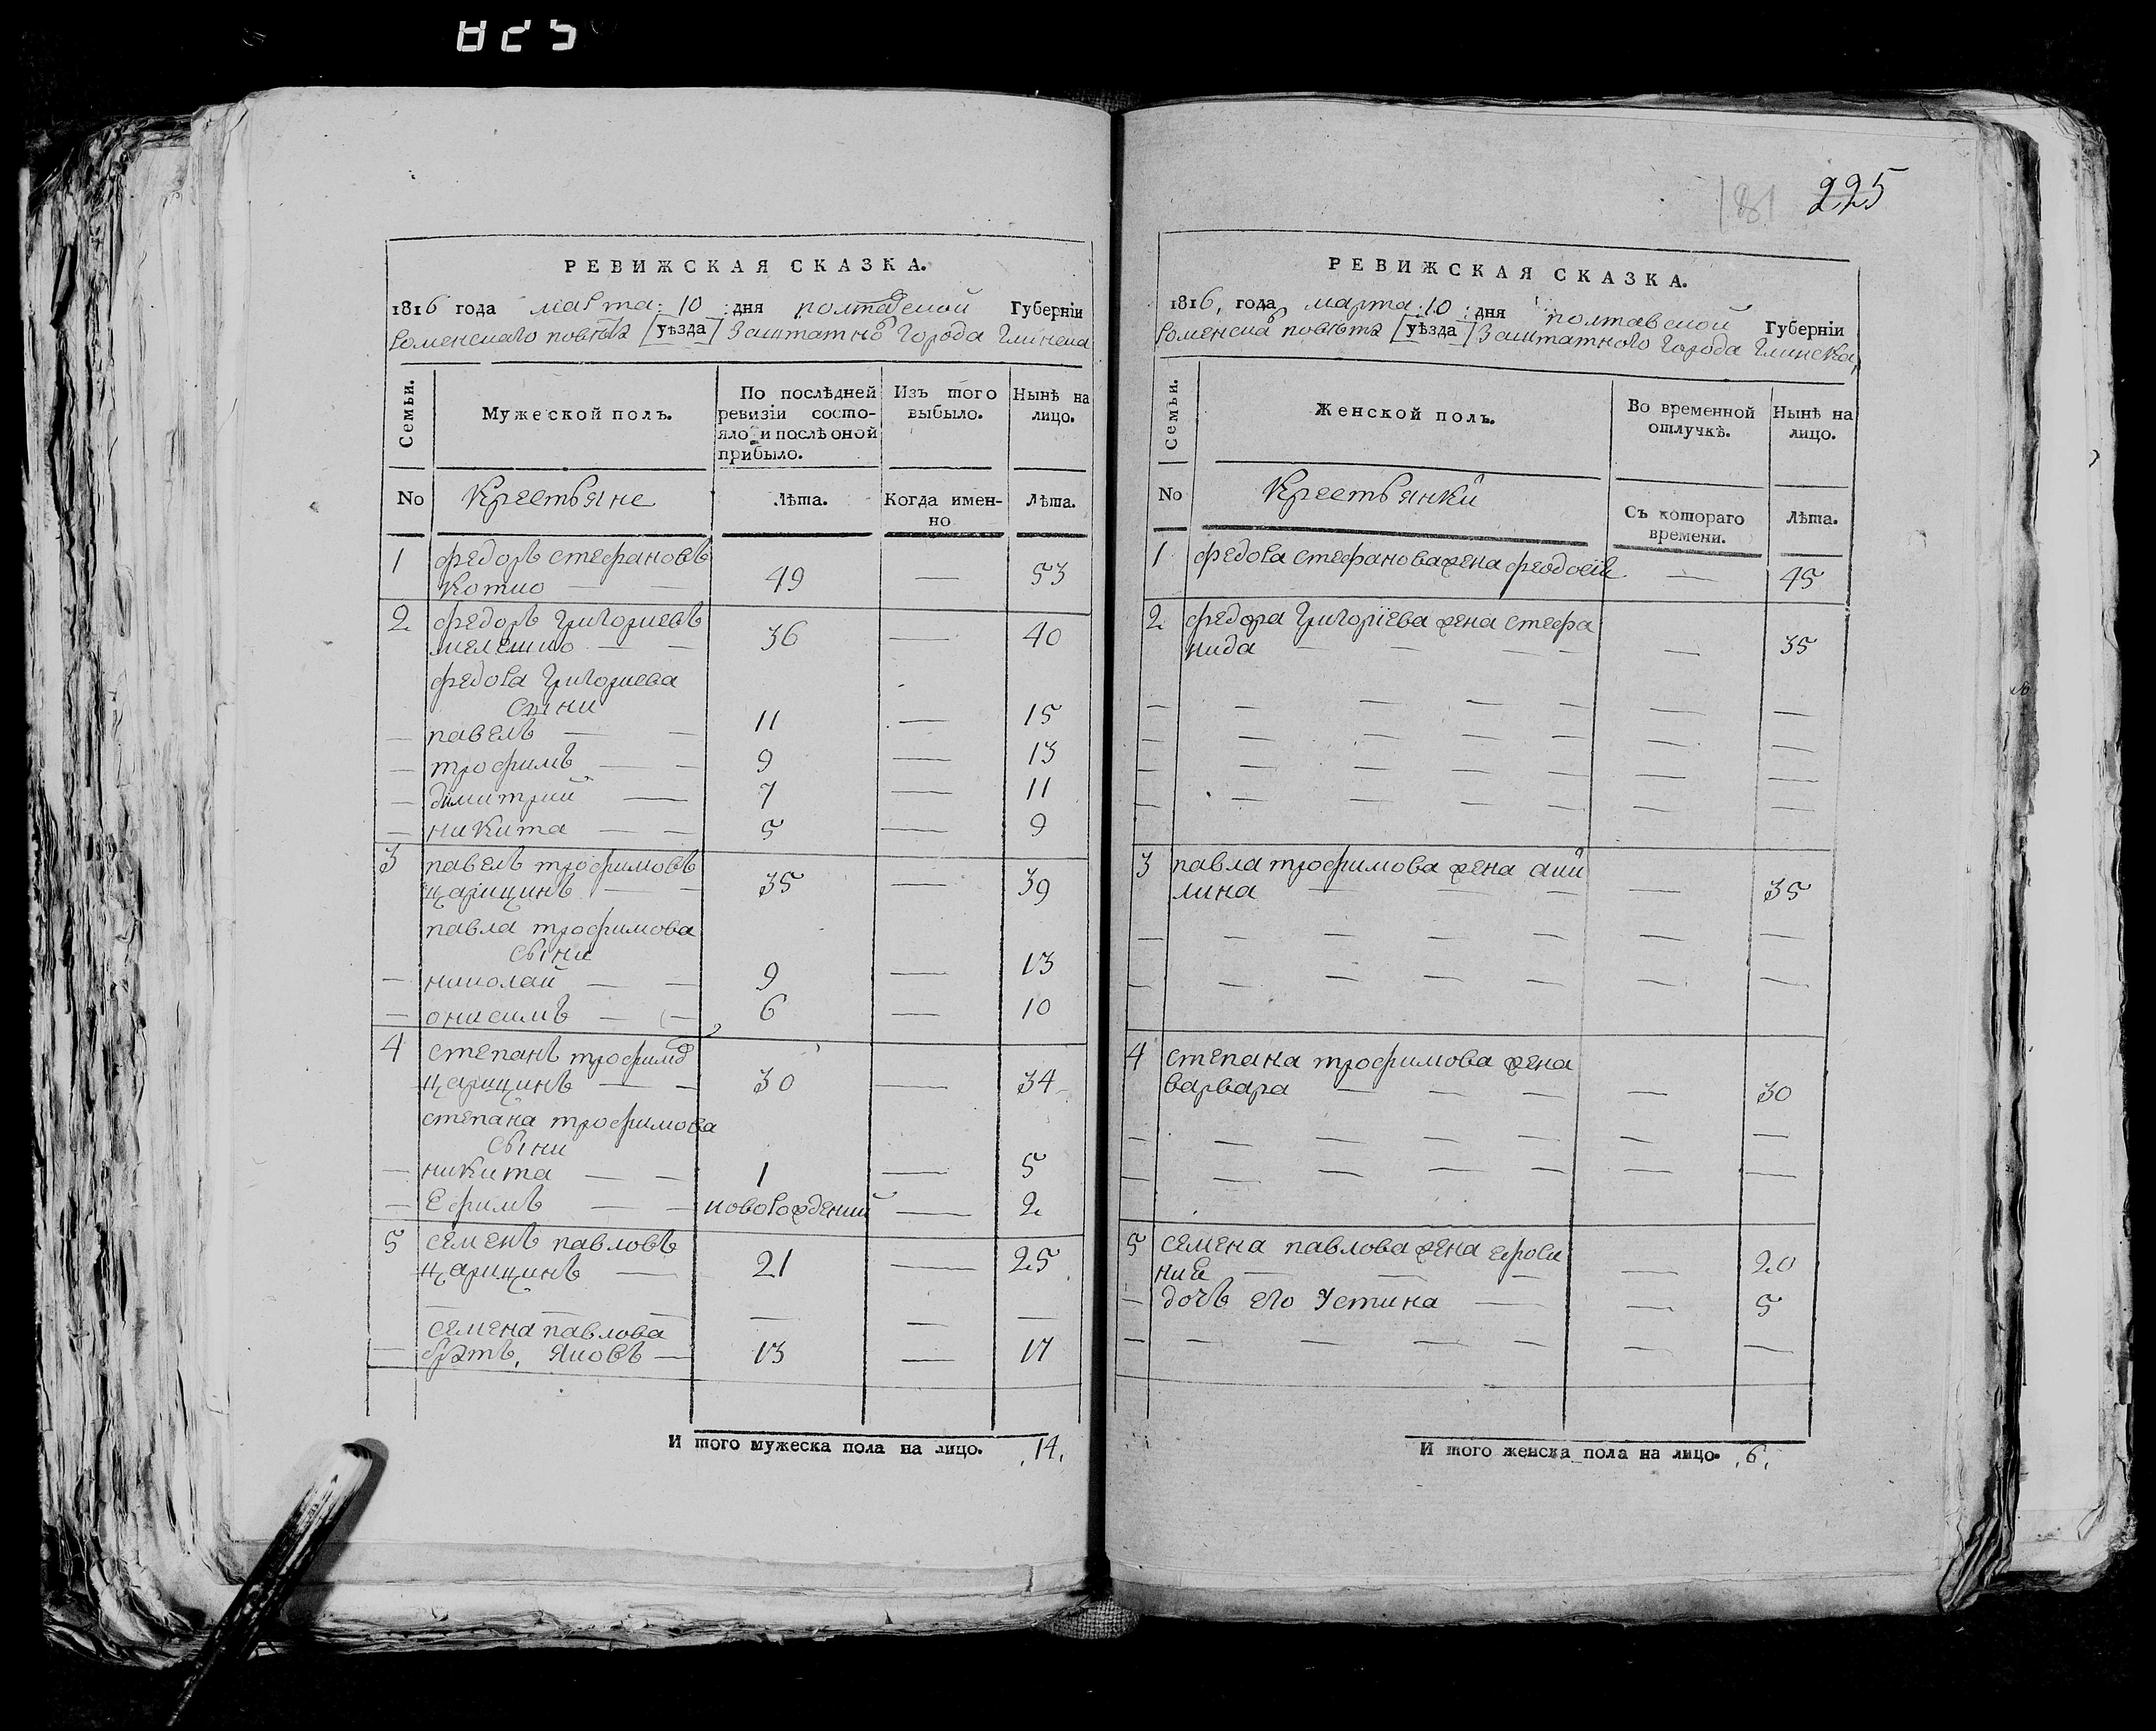 825
РЕВИЖСКАЯ СКАЗКА.
1816 года марта 10 дня полтавской Губерніи
Роменскаго повѣта [уѣзда] Заштатно города Глинска
Семьи.
Мужеской полъ.
По послѣдней ревизіи состояло и послѣ оной прибыло.
Изъ того выбыло.
Нынѣ на лицо.
No Крестьяне Лѣта. Когда именно Лѣта.
1 федоръ стефановъ
котко — 49 — 53
2 федоръ григориевъ
мелешко — — 36 — 40
федора григориева
сыни
— павелъ — — 11 — 15
— трофимъ — — 9 — 13
— димитрий — 7 — 11
— никита — — 5 — 9
3 павелъ трофимовъ
царицинъ — — 35 — 39
павла трофимова
сыни
— николай — — 9 — 13
— онисимъ — — 6 — 10
4 степанъ трофимов
царицинъ — — 30 — 34
степана трофимова
сыни
— никита — — 1 — 5
— Ефимъ — — новорождений — 2
5 семенъ павловъ
царицинъ — 21 — 25
— — — — — —
семена павлова
— братъ, яковъ — 13 — 17
И того мужеска пола на лицо. 14.
181 225
РЕВИЖСКАЯ СКАЗКА.
1816, года марта 10 дня полтавской Губерніи
Роменска повѣта [уѣзда] Заштатного города Глинска,
Семьи.
Женской полъ.
Во временной отлучкѣ.
Нынѣ на лицо.
No Крестьянки Съ котораго времени. Лѣта.
1 федора стефанова жена феодосія — 45
2 федора григоріева жена стефа
нида — — — — — 35
3 павла трофимова жена аки
лина — — — — 35
4 степана трофимова жена
варвара — — — — 30
5 семена павлова жена ефроси
ния — — — — 20
— дочъ его Устина — — 5
И того женска пола на лицо. 6.